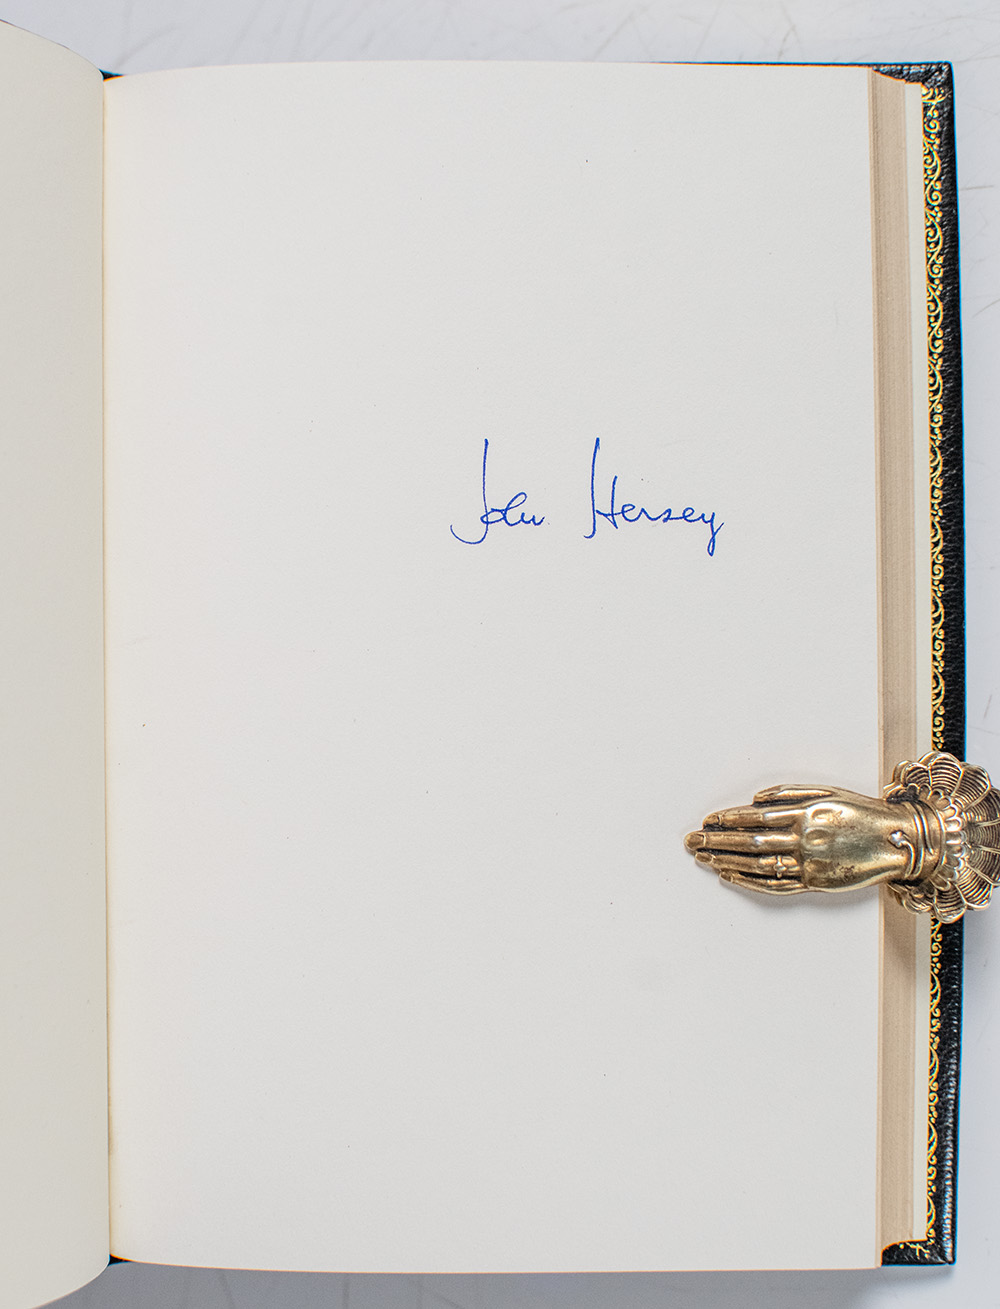 John Hersey